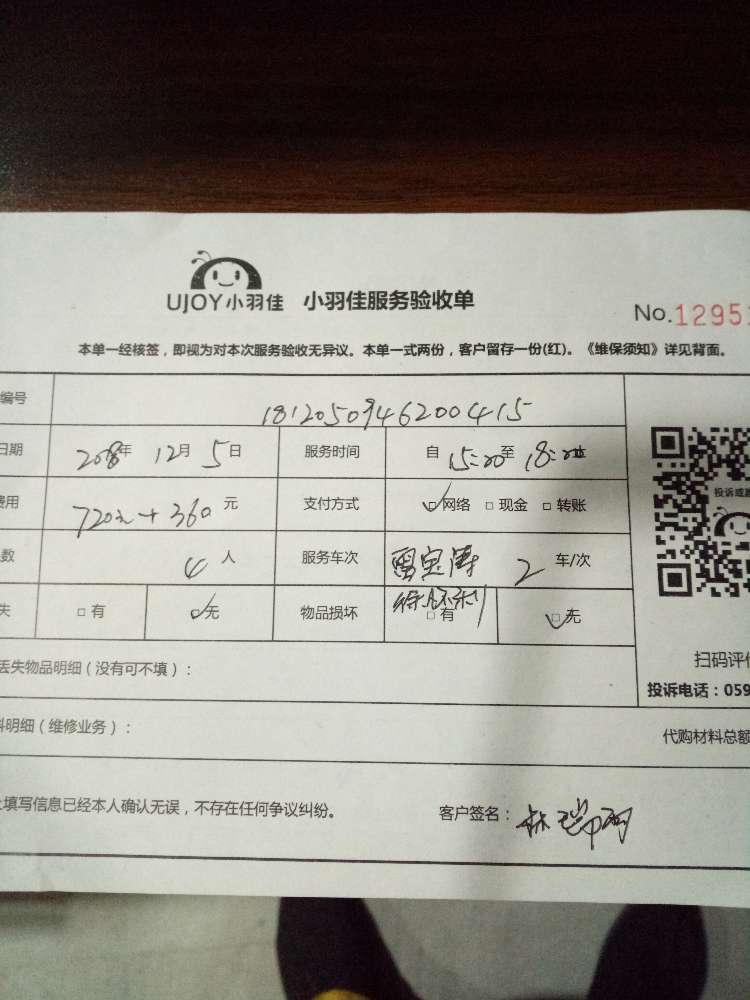 UJOY小羽佳 小羽佳服务验收单
No.1295
本单一经核签，即视为对本次服务验收无异议。本单一式两份，客户留存一份(红)。《维保须知》详见背面。
编号 1812050946200415
日期 2018年 12月 5日 服务时间 自 15:00至 18:00
费用 720元+360元 支付方式 ☑网络 □现金 □转账
数 4人 服务车次 2车/次
失 □有 ☑无 物品损坏 □有 ☑无
投诉或
扫码评价
丢失物品明细（没有可不填）：
投诉电话：059
料明细（维修业务）：
代购材料总额
上填写信息已经本人确认无误，不存在任何争议纠纷。 客户签名：